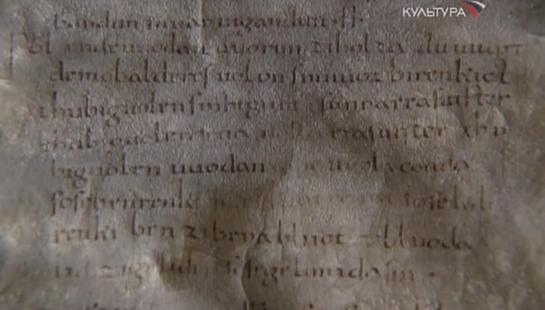 КУЛЬТУРА
ende uuodan uuorun zi holza du uuart
demo balderes uolon sin uuoz birenkict
thu biguolen sinhtgunt sunna era suister
thu biguolen uolla era suister thu
biguolen uuodan he uuola conda
sose benrenki sose lidi
renki ben zi bena bluot zi bluoda
lid zi geliden sose gelimida sin.